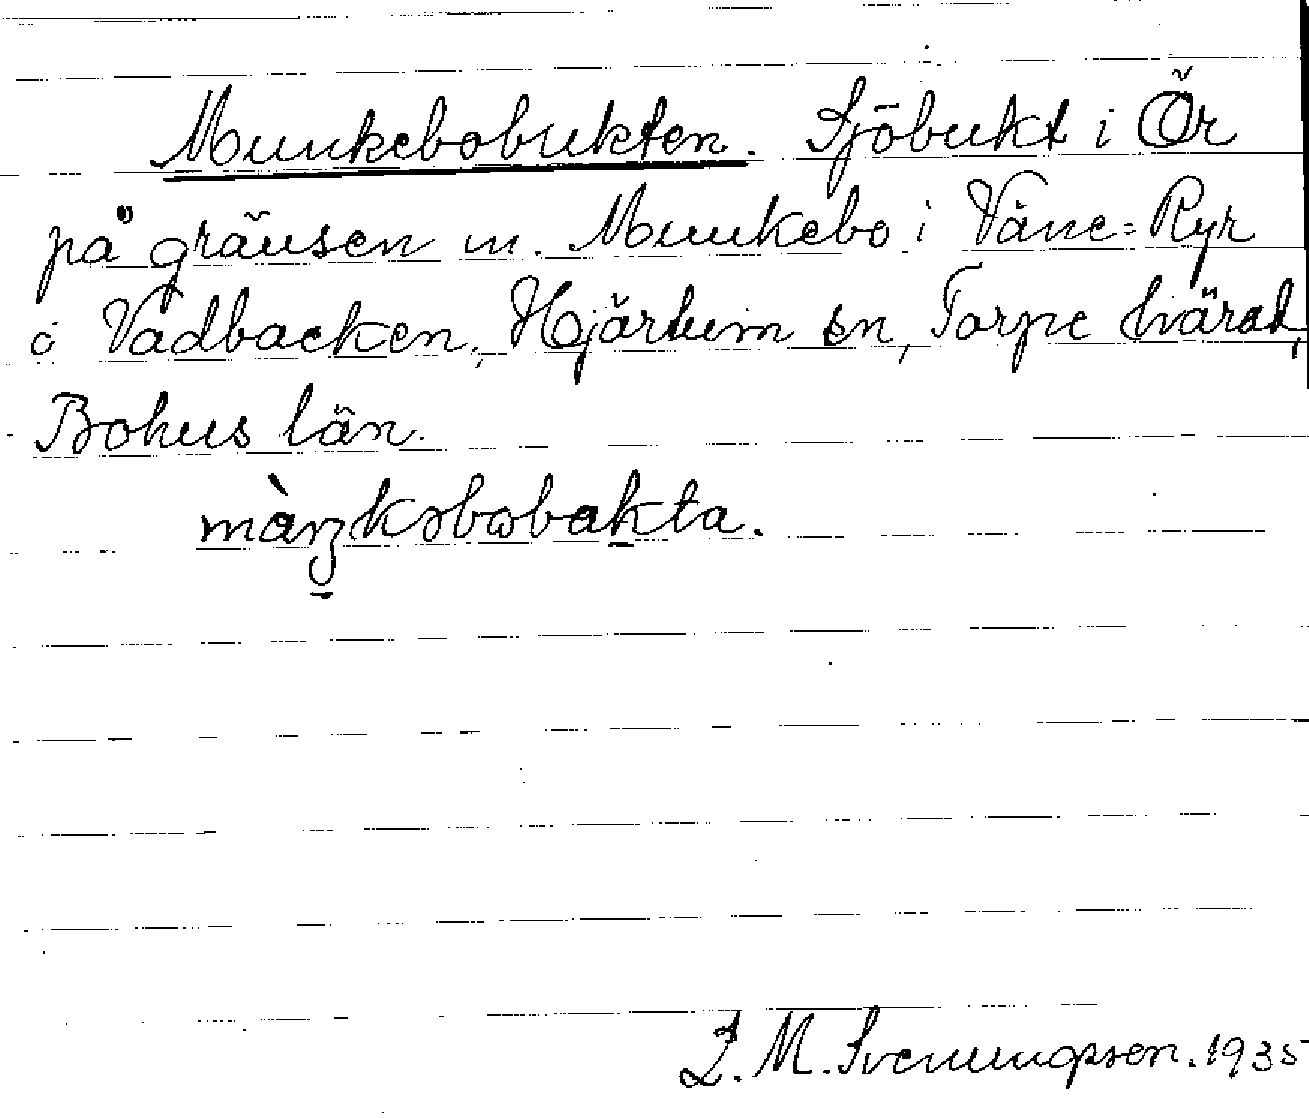 Munkebobukten. Sjöbukt i Ör
på gränsen m. Munkebo i Väne=Ryr
o Vadbacken, Hjärtum sn, Torpe härad,
Bohus län.
1935